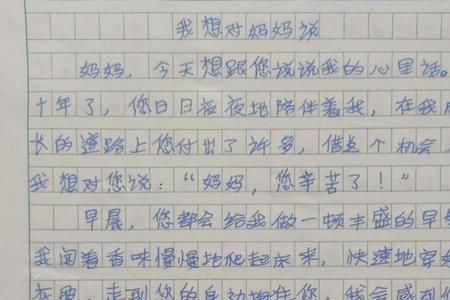 我想对妈妈说
妈妈，今天想跟您说说我的心里话。
十年了，您日日夜夜地陪伴着我，在我
长的道路上您付出了许多，借这个机会
我想对您说：“妈妈，您辛苦了！”
早晨，您都会给我做一顿丰盛的早
我闻着香味慢慢地爬起床来，快速地穿